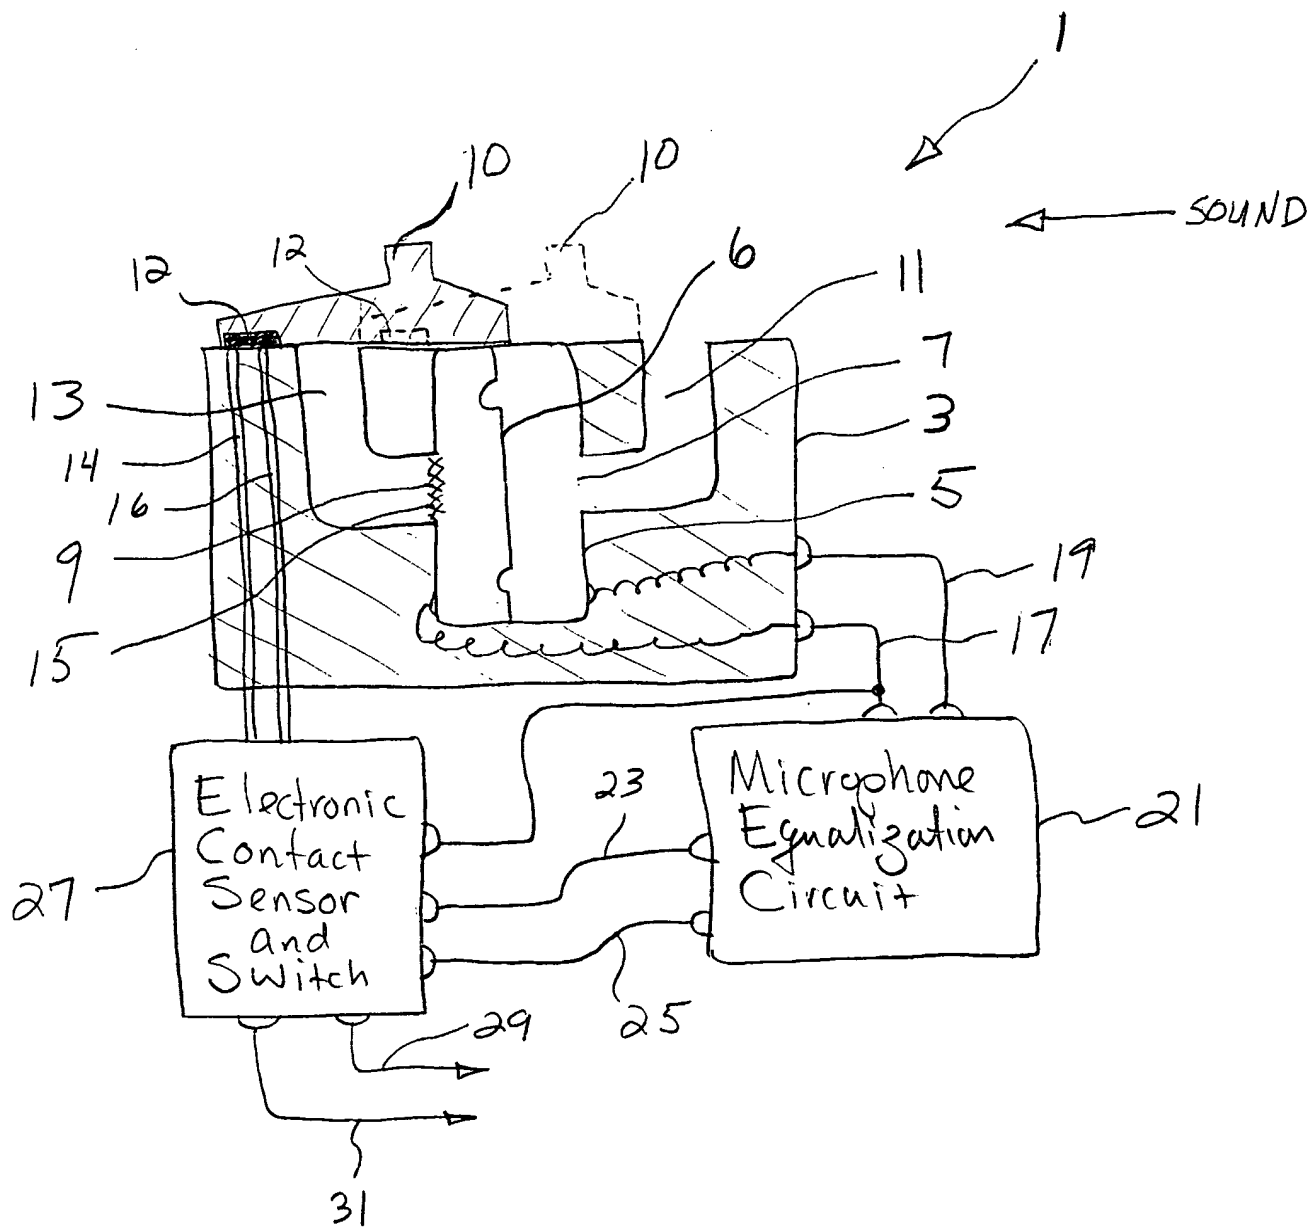 1
10
10
SOUND
12
12
6
11
7
13
3
14
16
5
9
19
15
17
Electronic
Contact
Sensor
and
Switch
23
Microphone
Equalization
Circuit
21
27
25
29
31